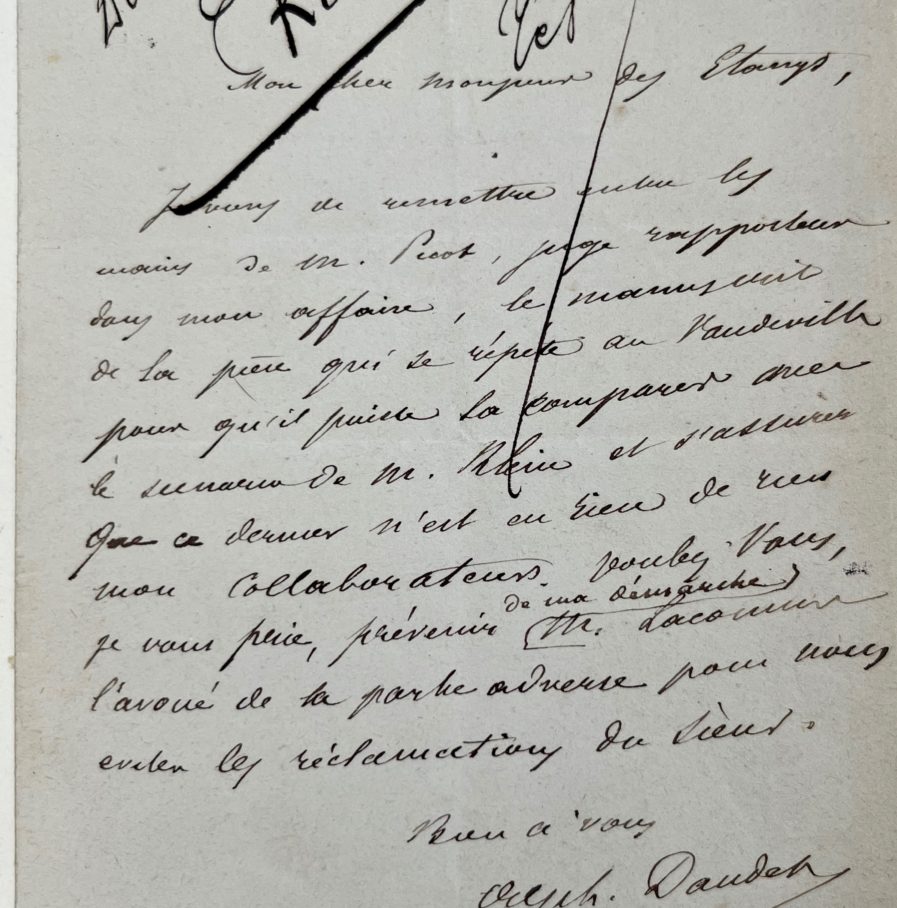 Mon cher monsieur des Etangs,
Je viens de remettre entre les
mains de M. Picot, juge rapporteur
dans mon affaire, le manuscrit
de la pièce qui se répète au Vaudeville
pour qu'il puisse la comparer avec
le scenario de M. Klein et s'assurer
que ce dernier n'est en rien de rien
mon collaborateur. Voulez-vous,
de ma démarche
je vous prie, prévenir M.
l'avoué de la partie adverse pour nous
eviter les réclamations du sieur.
Bien à vous
Alph. Daudet